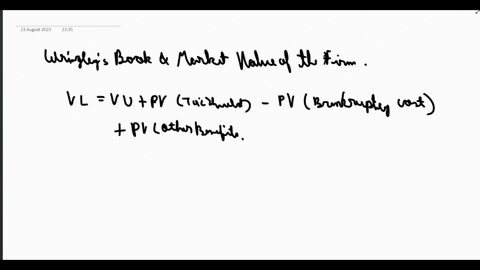 23 August 2023 21:35
Wrigley's Book & Market Value of the Firm.
VL = VU + PV (Tax Shield) - PV (Bankruptcy cost)
+ PV (other Benefits.